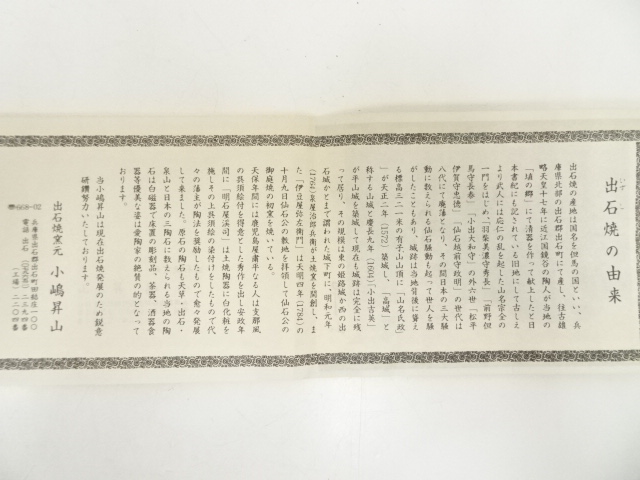 出石焼の由来
いずし
出石焼の産地は国名を但馬の国といい、兵
庫県北部の出石郡出石町にて産し、往古雄
略天皇十七年に近江国鏡谷の陶人が当地の
「埴の郷」にて清器を作って献上したと日
本書紀にも記されている旧地にして古しえ
より武人には応仁の乱を起した山名宗全の
一門をはじめ「羽柴美濃守秀長」「前野但
馬守長泰」「小出大和守」の外六世「松平
伊賀守忠徳」「仙石越前守政明」の世代は
八代にて廃藩となり、その間日本の三大騒
動に数えられる仙石騒動も起って世人を騒
がしたこともあり、城跡は当地背後に聳え
る標高三二一米の有子山山頂に「山名氏政
」が天正二年(1572)築城し、「高城」と
称する山城と慶長九年(1604)「小出吉英」
が平山城を築城して現在も城跡は完全に残
って居り、その規模は東の姫路城か西の出
石城かとまで謂われた城下町に、明和元年
(1764)泉屋治郎兵衛が土焼窯を開創し、ま
た「伊豆屋弥左衛門」は天明四年(1784)の
十月九日仙石公の教地を拝領して仙石公の
御庭焼の初窯を焼いている。
天保年間には鹿児島屋粛平なる人は支那風
の呉須絵付を得意とした秀作を出し安政年
間に「明石屋渓司」は土焼陶器に白化粧を
施しその上呉須絵の染付けをしたもので代
々の藩主が陶法を奨励したもので愈々発展
して来ました。原石の陶石も天草・出石・
泉山と日本の三陶石に数えられる当地の陶
石は白磁器で床置の彫刻品、茶器、酒器食
器等優美な姿は愛陶家の絶賛の的となって
おります。
当小嶋昇山は現在出石焼発展のため鋭意
研鑽努力いたしております。
出石焼窯元 小嶋昇山
兵庫県出石郡出石町田結庄一〇〇